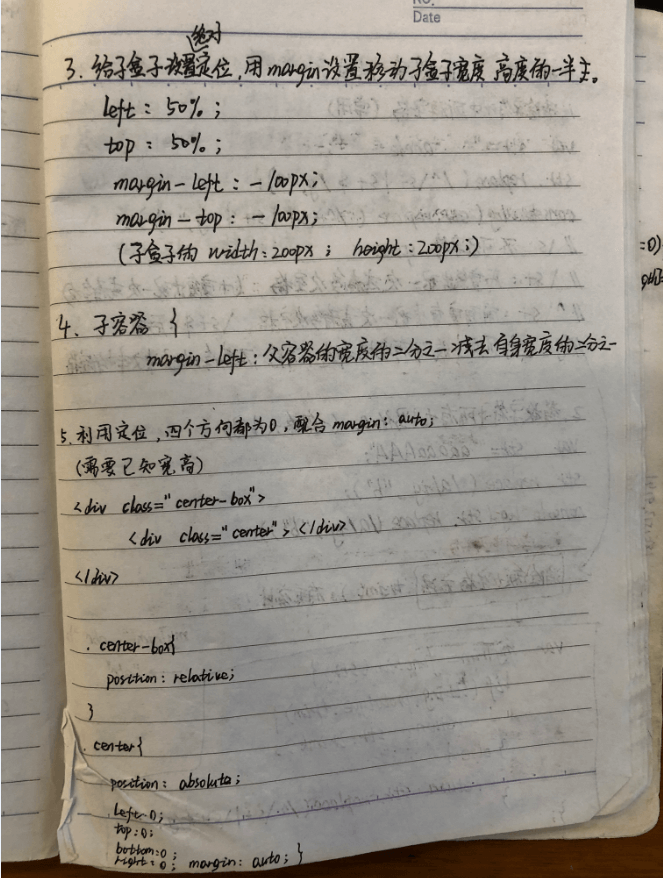 No.
Date
绝对
3. 给子盒子设置定位，用margin设置移动子盒子宽度 高度的一半主。
left：50%；
top：50%；
margin-left：-100px；
margin-top：-100px；
(子盒子的 width：200px； height：200px；)
4. 子容器 {
margin-left：父容器的宽度的二分之一减去自身宽度的二分之一
5. 利用定位，四个方向都为0，配合 margin：auto；
(需要已知宽高)
<div class="center-box">
<div class="center"> </div>
</div>
.center-box{
position：relative；
}
.center{
position：absolute；
left：0；
top：0；
bottom：0；
right：0； margin：auto；}